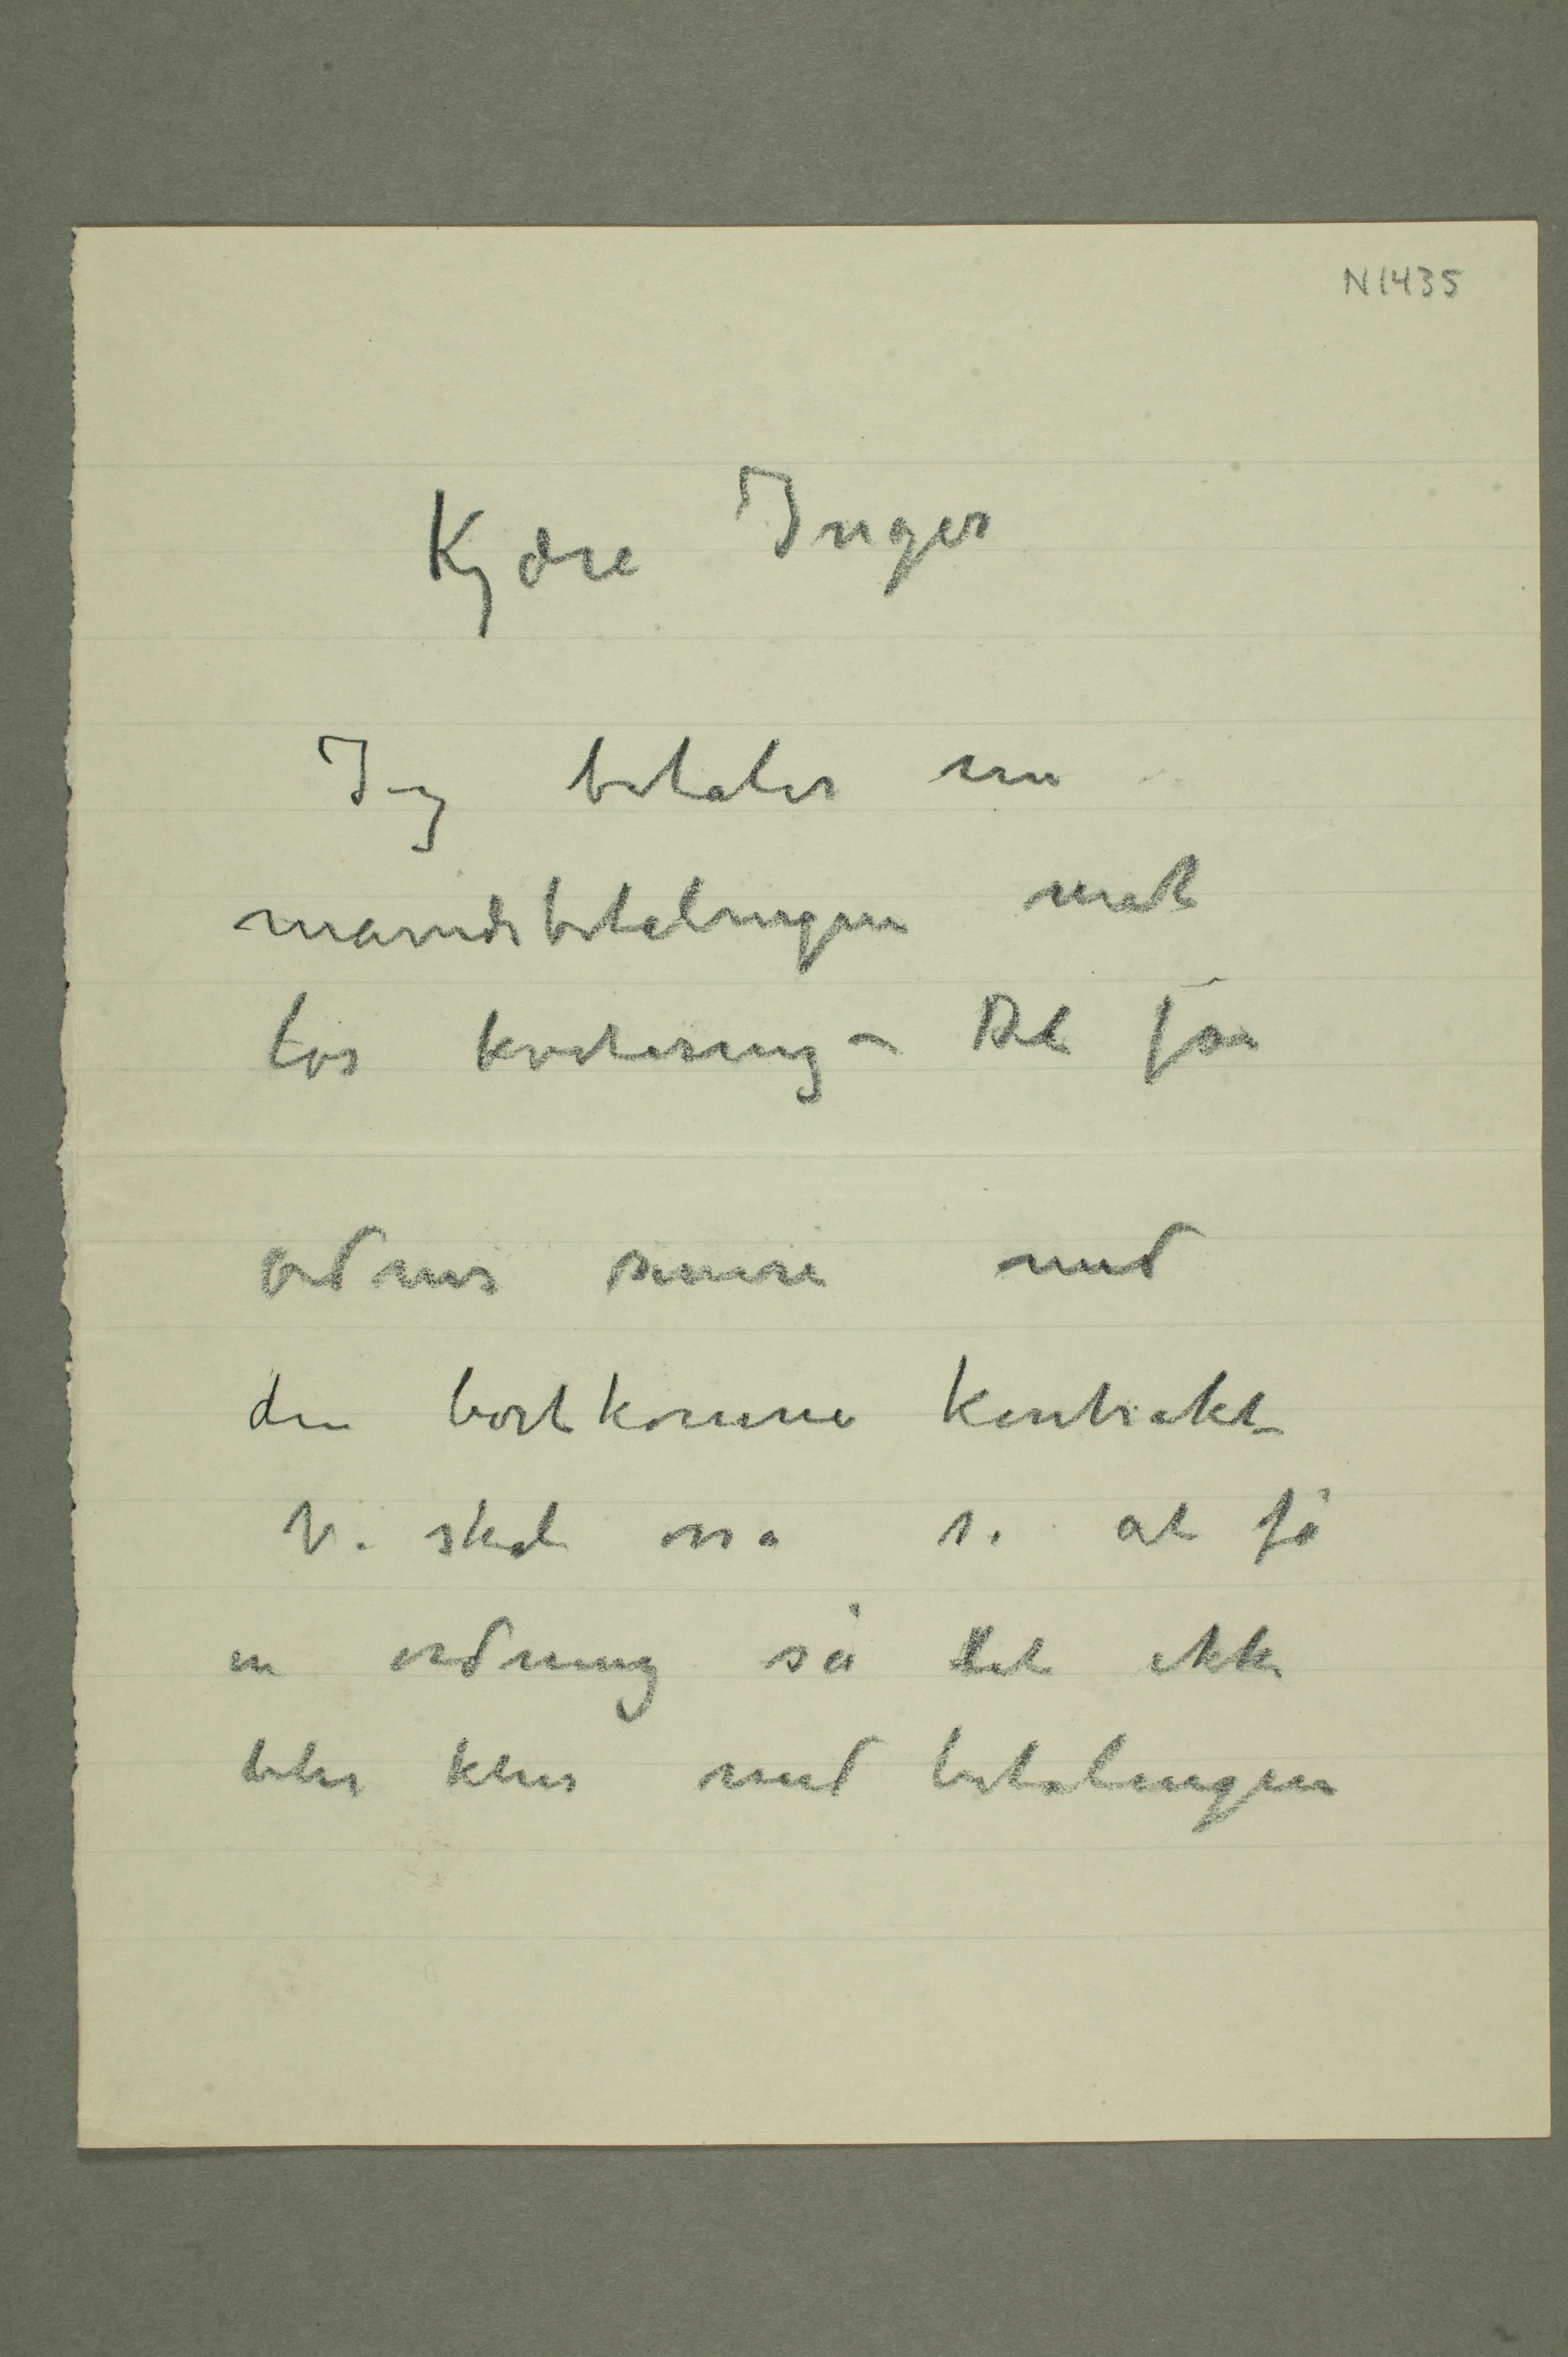 N1435
Kjære Inger
Jeg betaler nu
maanedsbetalingen mot
løs kvitering – Det får
ordnes senere med
den bortkomne kontrakt –
Vi skal også se at få
en ordning så det ikke
blir klus med betalingen